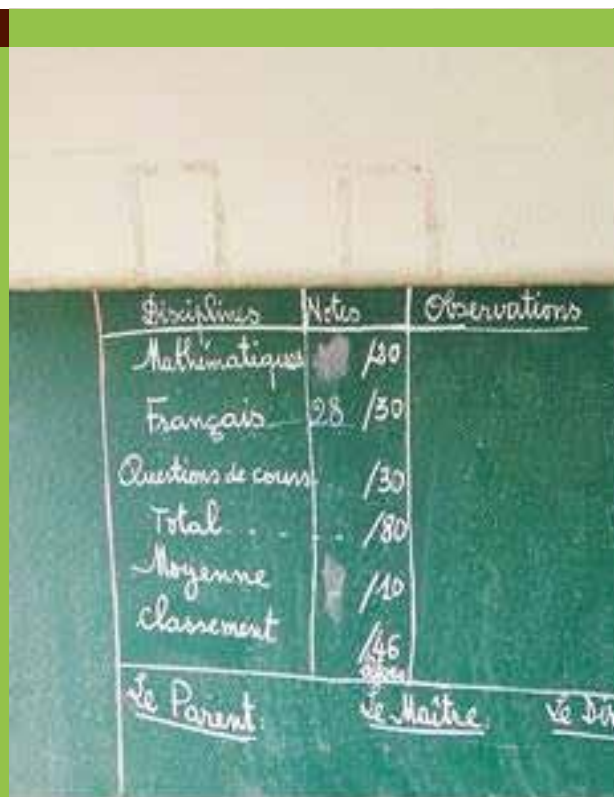 Disciplines Notes Observations
Mathématiques /20
Français 28 /30
Questions de cours /30
Total . . . . /80
Moyenne /10
Classement /46
Le Parent: Le Maître: Le Dir